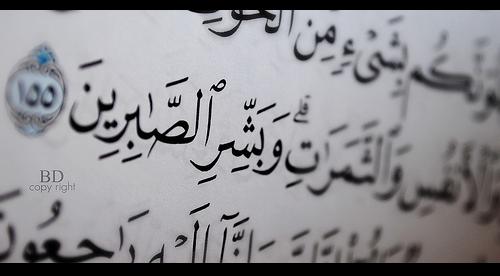 بِشَىْءٍ مِّنَ ٱلْخَوْفِ
وَٱلْأَنفُسِ وَٱلثَّمَرَٰتِ ۗ وَبَشِّرِ ٱلصَّٰبِرِينَ ١٥٥
رَٰجِعُونَ
BD
copy right